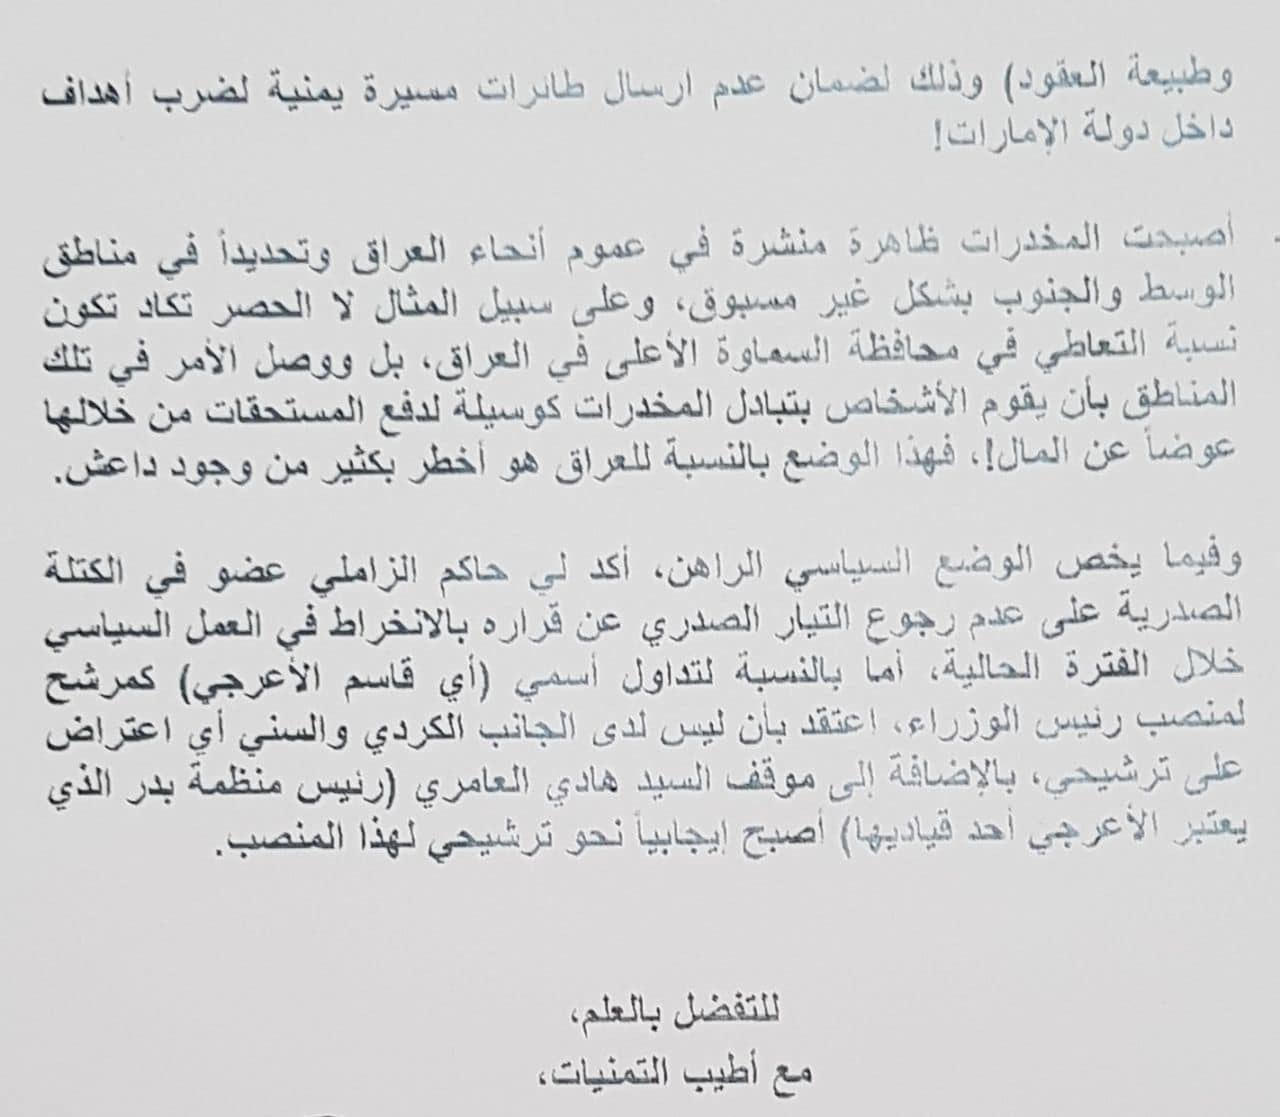 وطبيعة العقود) وذلك لضمان عدم ارسال طائرات مسيرة يمنية لضرب أهداف
داخل دولة الإمارات!
أصبحت المخدرات ظاهرة منشرة في عموم أنحاء العراق وتحديداً في مناطق
الوسط والجنوب بشكل غير مسبوق، وعلى سبيل المثال لا الحصر تكاد تكون
نسبة التعاطي في محافظة السماوة الأعلى في العراق، بل ووصل الأمر في تلك
المناطق بأن يقوم الأشخاص بتبادل المخدرات كوسيلة لدفع المستحقات من خلالها
عوضاً عن المال!، فهذا الوضع بالنسبة للعراق هو أخطر بكثير من وجود داعش.
وفيما يخص الوضع السياسي الراهن، أكد لي حاكم الزاملي عضو في الكتلة
الصدرية على عدم رجوع التيار الصدري عن قراره بالانخراط في العمل السياسي
خلال الفترة الحالية، أما بالنسبة لتداول أسمي (أي قاسم الأعرجي) كمرشح
لمنصب رئيس الوزراء، اعتقد بأن ليس لدى الجانب الكردي والسني أي اعتراض
على ترشيحي، بالإضافة إلى موقف السيد هادي العامري (رئيس منظمة بدر الذي
يعتبر الأعرجي أحد قياديها) أصبح إيجابياً نحو ترشيحي لهذا المنصب.
للتفضل بالعلم،
مع أطيب التمنيات،